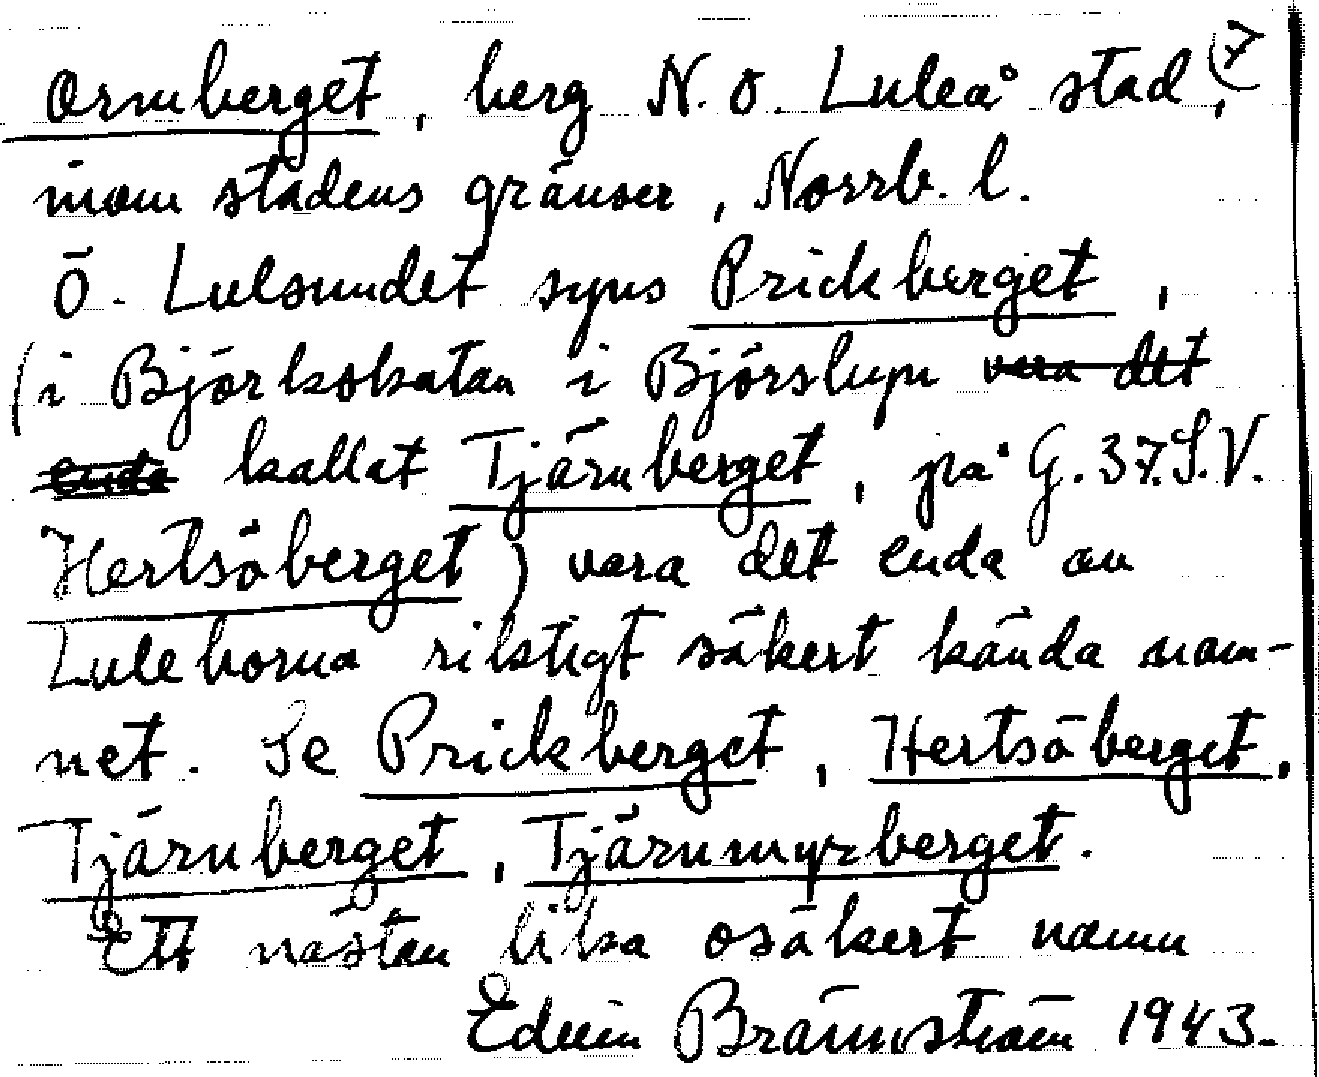 Ormberget, berg N. O. Luleå stad, (7
inom stadens gränser, Norrb. l.
Ö. Lulsundet syns Prickberget,
(i Björkskatan i Björslupn vara det
enda kallat Tjärnberget, på G. 37.S.V.
Hertsöberget) vara det enda av
Luleborna riktigt säkert kända nam-
net. Se Prickberget, Hertsöberget,
Tjärnberget, Tjärnmyrberget.
Ett nästan lika osäkert namn
Edvin Brännström 1943.